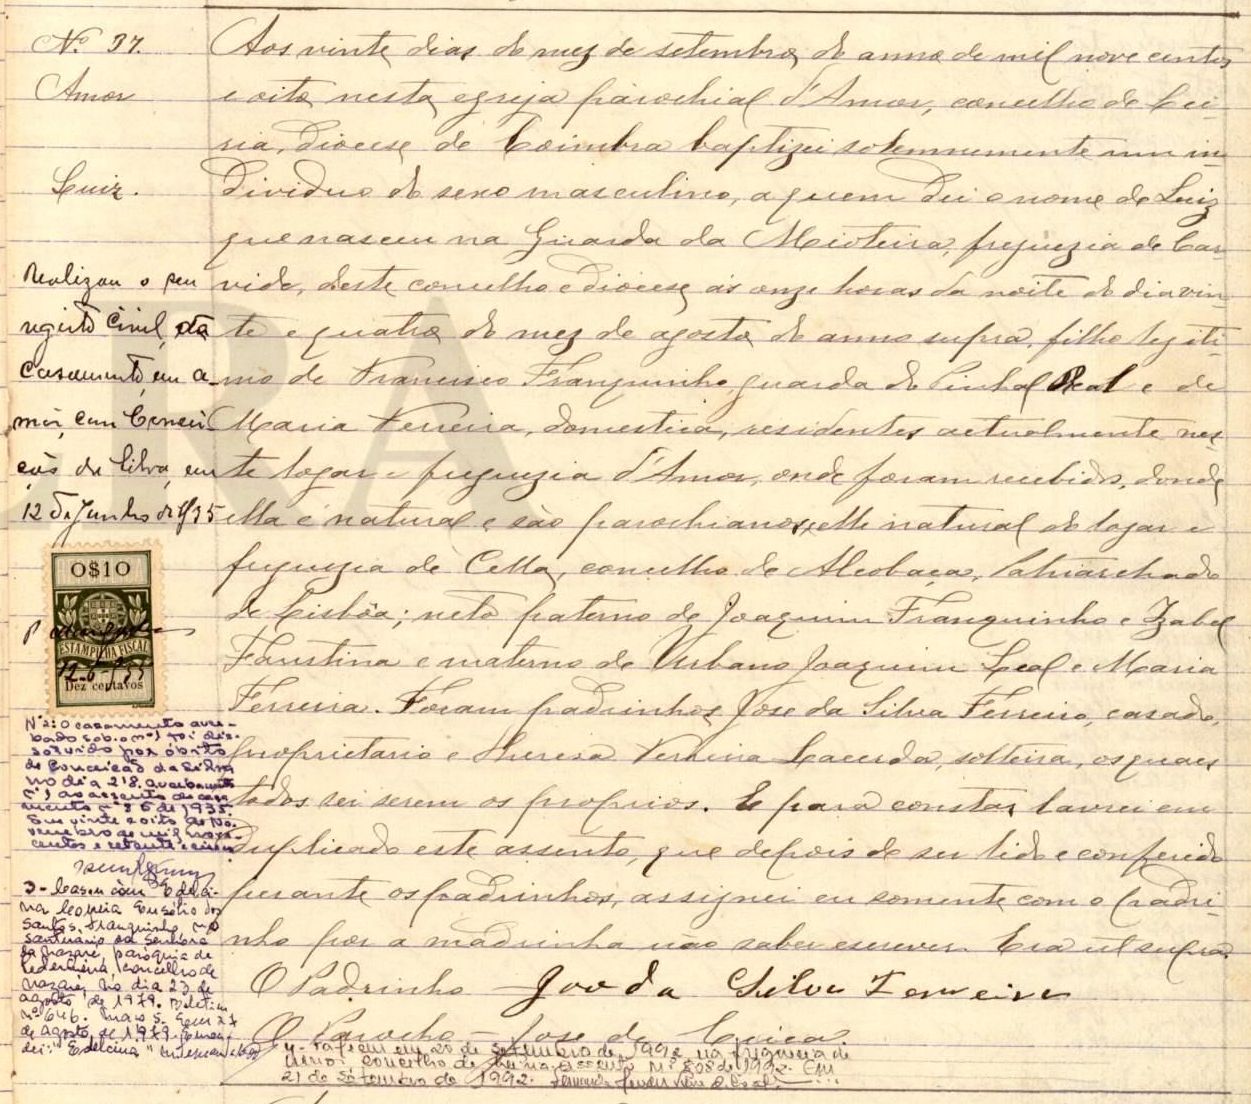 Nº 37.
Amor
Luiz.
Aos vinte dias do mez de setembro do anno de mil nove centos
e oito nesta egreja parochial d'Amor, concelho de Lei-
ria, diocese de Coimbra baptizei solemnemente um in-
dividuo do sexo masculino, a quem dei o nome de Luiz
que nasceu na Guarda da Mioteira, freguezia de Car-
vide, deste concelho e diocese ás onze horas da noite do dia vin-
te e quatro do mez de agosto do anno supra, filho legiti-
mo de Francisco Franquinho, guarda do Pinhal Real e de
Maria Ferreira, domestica, residentes actualmente nes-
te logar e freguezia d'Amor, onde foram recebidos, donde
ella é natural e são parochianos, elle natural do logar e
freguezia de Cella, concelho de Alcobaça, Patriarchado
de Lisbôa; neto paterno de Joaquim Franquinho e Izabel
Faustina e materno de Urbano Joaquim Leal e Maria
Ferreira. Foram padrinhos Jose da Silva Ferreira, casado,
proprietario e Thereza Ferreira Lacerda, solteira, os quaes
todos sei serem os proprios. E para constar lavrei em
duplicado este assento, que depois de ser lido e conferido
perante os padrinhos, assignei eu somente com o padri-
nho por a madrinha não saber escrever. Era ut supra.
O Padrinho da Silva Ferreira
O Parocho Jose de
Realizou o seu
registo civil, de
casamento, em A-
mor, com Concei-
ção da Silva, em
12 de Junho de 1935
0$10
ESTAMPILHA FISCAL
12-6-935
Dez centavos
Nº 2: O casamento aver-
bado sob o nº 1 foi dis-
solvido por óbito
de Conceição da Silva
no dia 28. averbamento
nº 1 ao assento de casa-
mento nº 26 de 1935.
Em vinte e oito de No-
vembro de mil nove-
centos e setenta e cinco
3 - Casou com Edelci-
na Correia Eusébio dos
Santos Franquinho, no
santuário da Senhora
da Nazaré, paróquia de
Pederneira, concelho de
Nazaré, no dia 23 de
agosto de 1979. Boletim
nº 646. Maço 5. Em 27
de agosto de 1979. Emen-
dei: "Edelcina"
4 - Faleceu em 20 de setembro de 1992 na freguesia de
concelho de Leiria. Assento Nº 808 de 1992. Em
21 de Setembro de 1992.